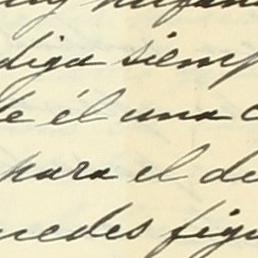 diga siemp
de él una c
para el de
uedes figu